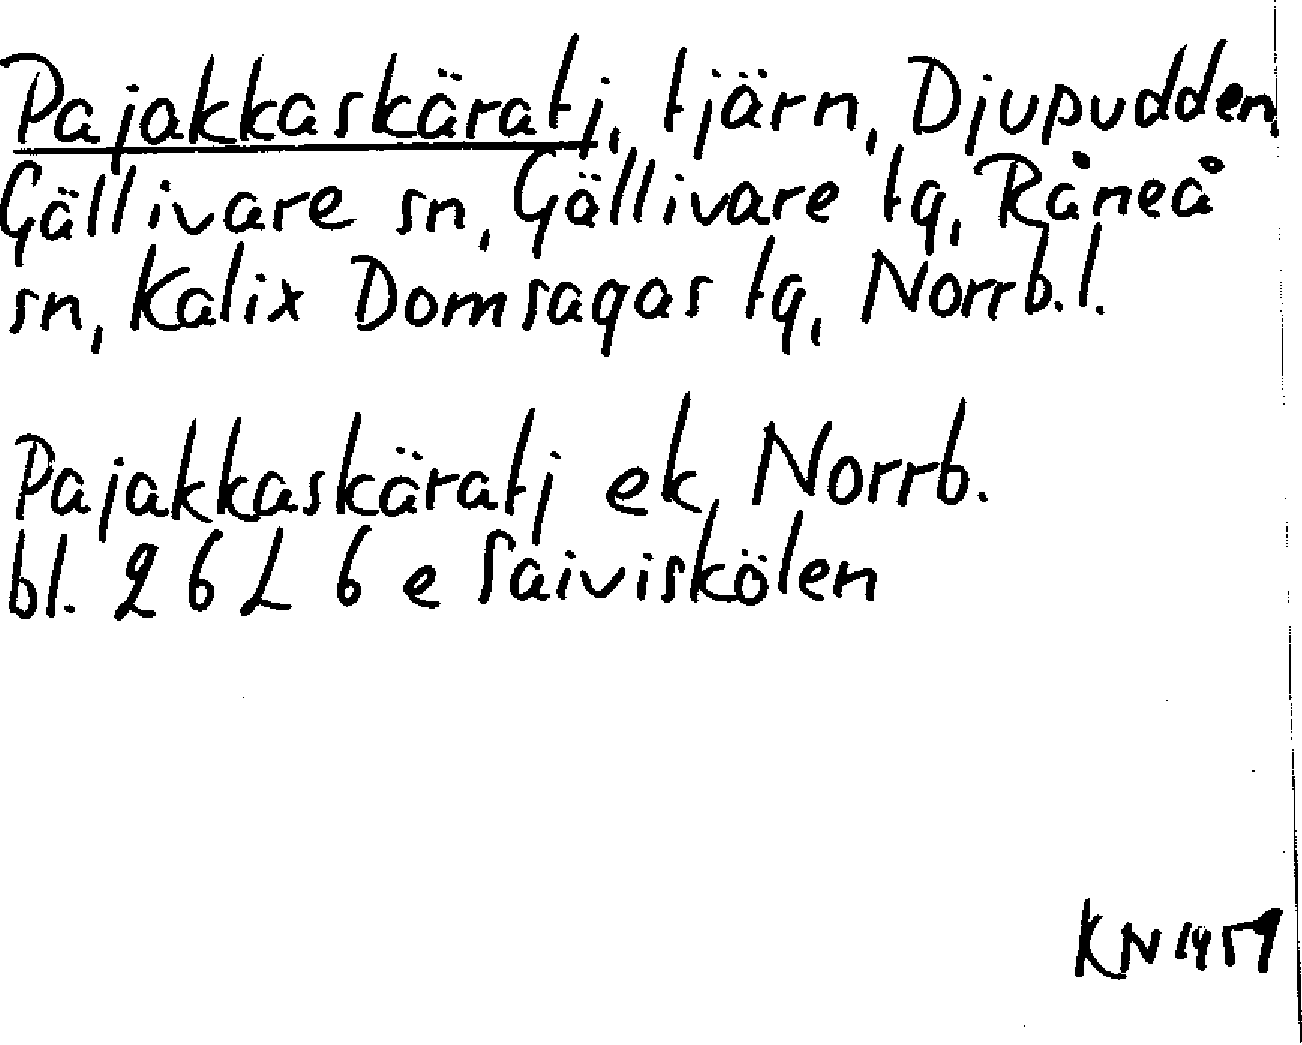 Pajakkaskäratj, tjärn, Djupudden,
Gällivare sn, Gällivare tg, Råneå
sn, Kalix Domsagas tg, Norrb.l.
Pajakkaskäratj ek, Norrb.
bl. 26 L 6 e Saiviskölen
KN